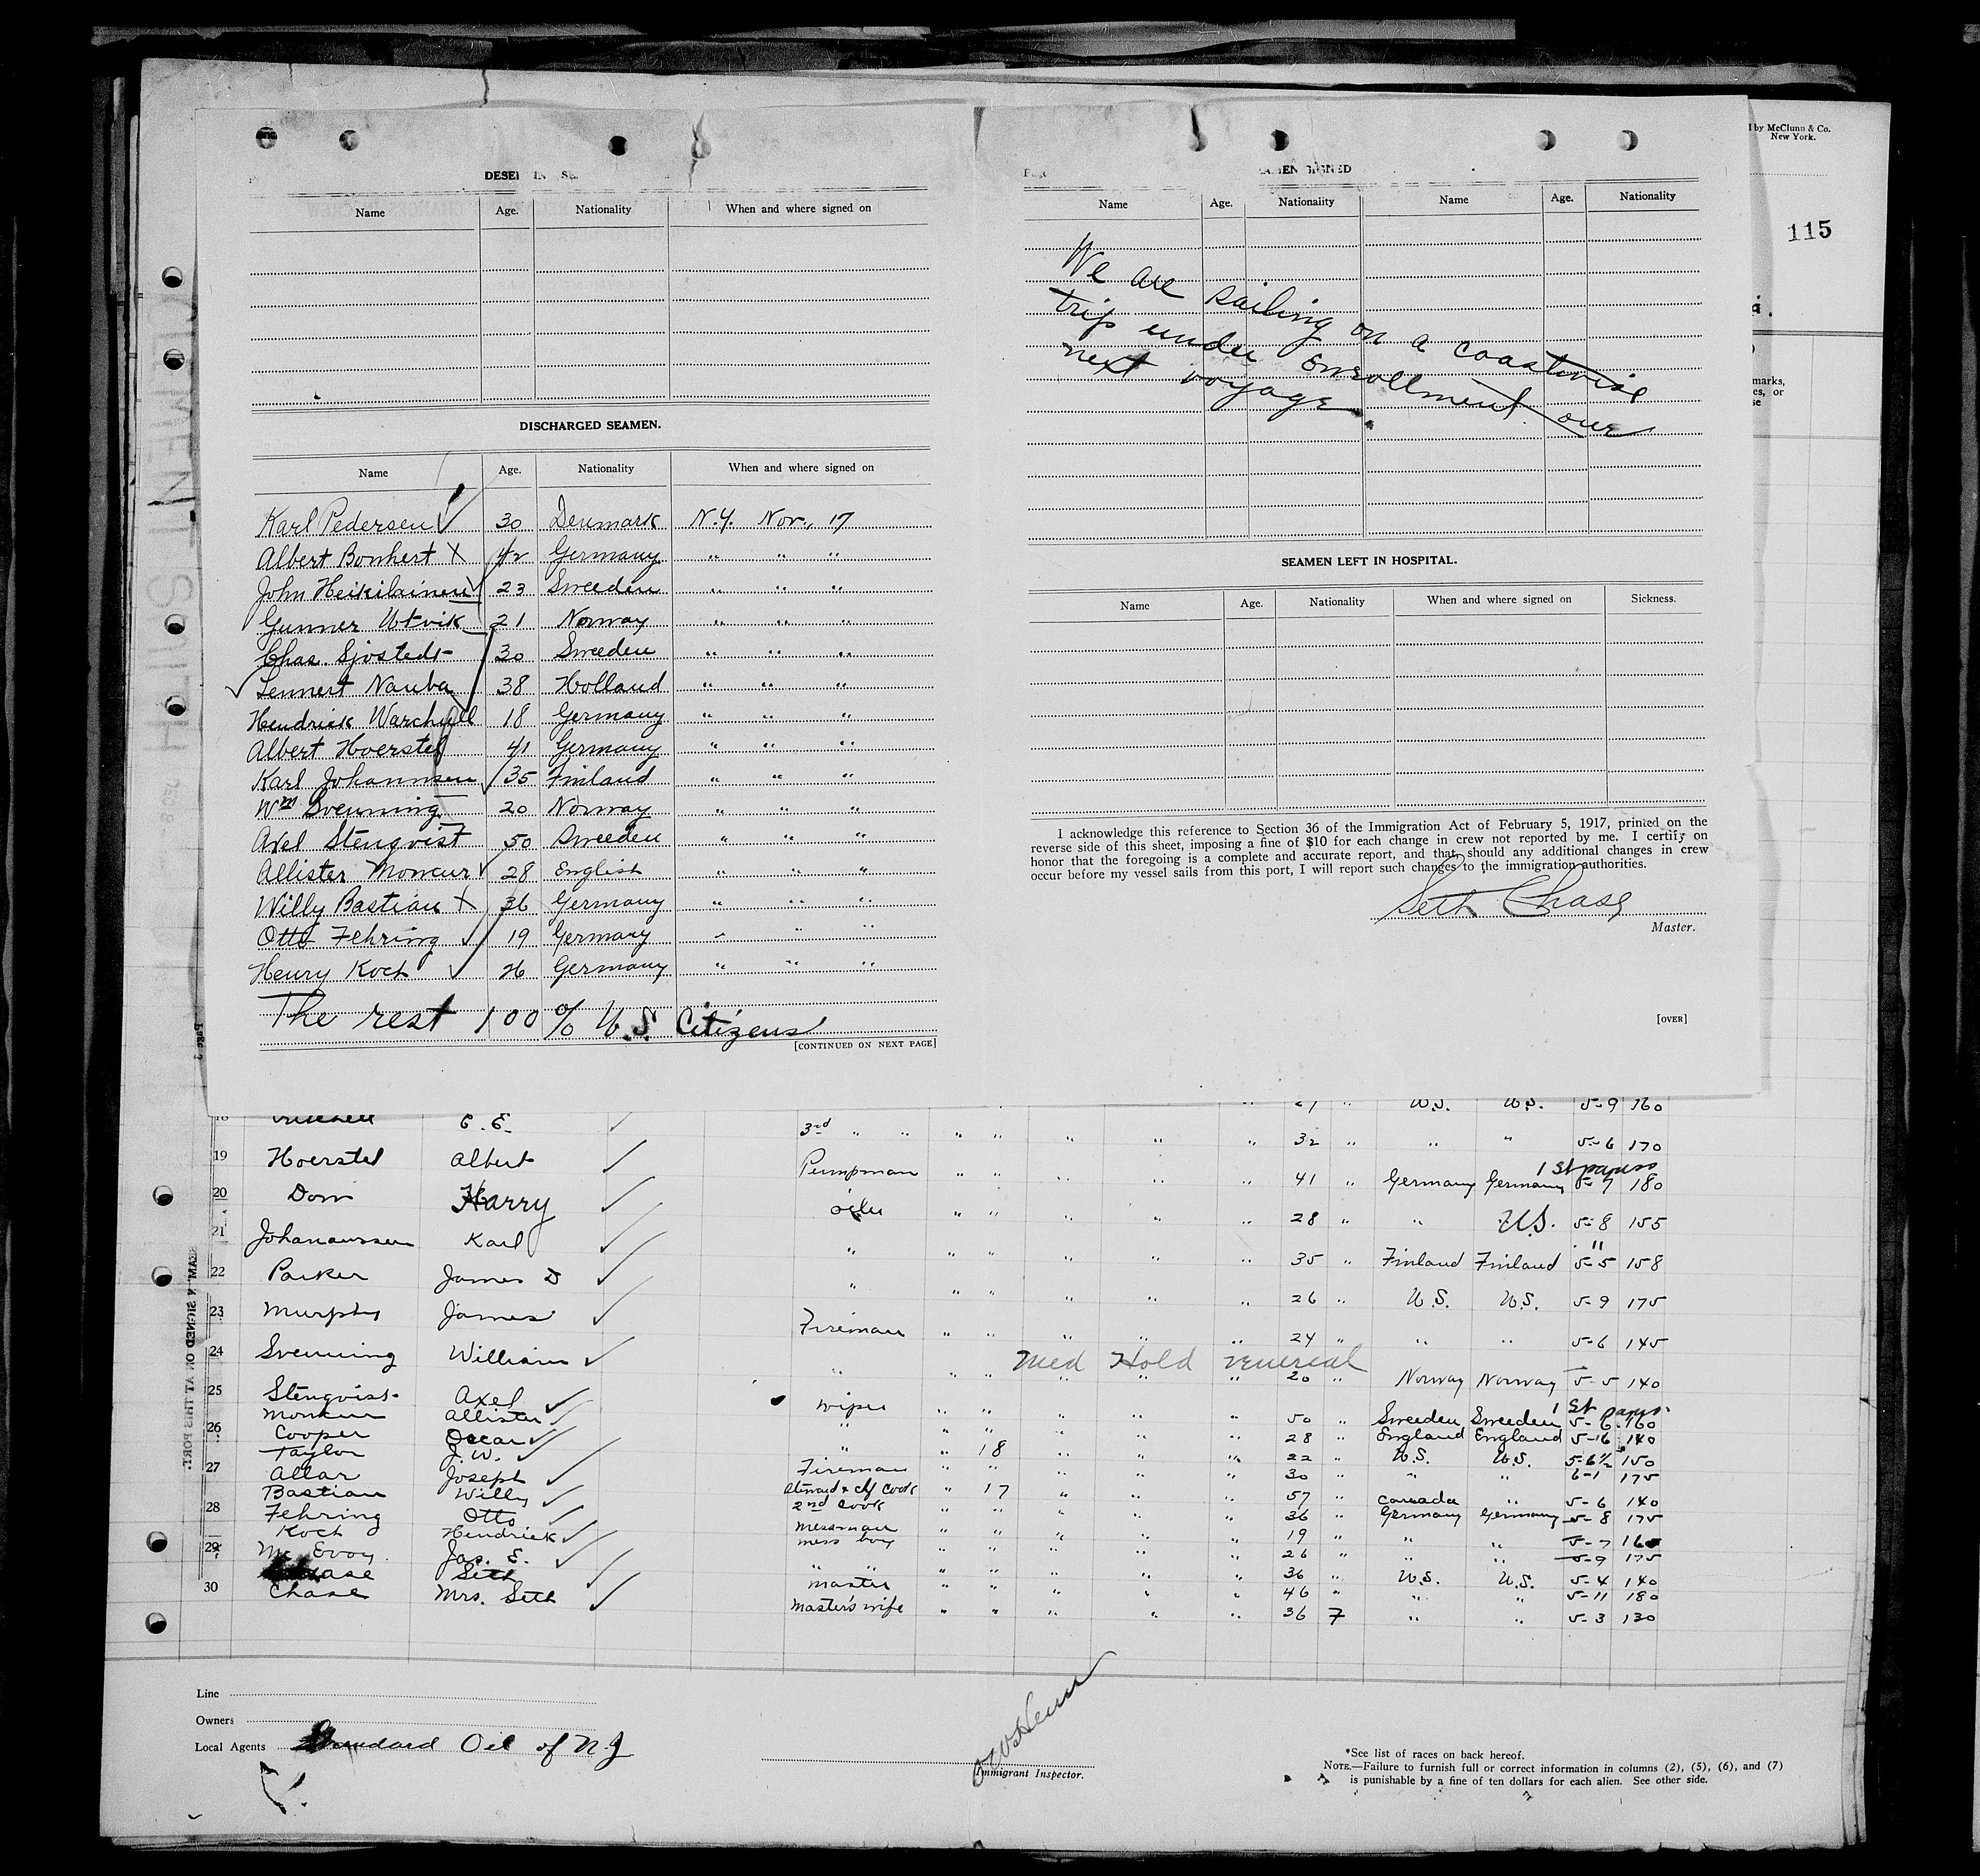 l by McClunn & Co.
New York.
115
DESE IN SE
AMEN SIGNED
Name Age. Nationality When and where signed on
Name Age. Nationality Name Age. Nationality
We are sailing on a coastwise
trip under enrollment our
next voyage
marks,
es, or
se
DISCHARGED SEAMEN.
Name Age. Nationality When and where signed on
Karl Pedersen 30 Denmark N.Y. Nov., 17
Albert Bonhert X 42 Germany " " "
John Heikilainen 23 Sweeden " " "
Gunner Utvik 21 Norway " " "
Chas. Sjostedt 30 Sweeden " " "
Lennert Nauba 38 Holland " " "
Hendrick Warchull 18 Germany " " "
Albert Hoerstel 41 Germany " " "
Karl Johannsen 35 Finland " " "
Wm Svenning 20 Norway " " "
Axel Stenqvist 50 Sweeden " " "
Allister Moncur 28 English " " "
Willy Bastian X 36 Germany " " "
Otto Fehring 19 Germany " " "
Henry Koch 26 Germany " " "
The rest 100% U.S. Citizens
[CONTINUED ON NEXT PAGE]
SEAMEN LEFT IN HOSPITAL.
Name Age. Nationality When and where signed on Sickness.
I acknowledge this reference to Section 36 of the Immigration Act of February 5, 1917, printed on the
reverse side of this sheet, imposing a fine of $10 for each change in crew not reported by me. I certify on
honor that the foregoing is a complete and accurate report, and that, should any additional changes in crew
occur before my vessel sails from this port, I will report such changes to the immigration authorities.
Seth Chase
Master.
[OVER]
Page 2
SEAMEN SIGNED ON AT THIS PORT.
18 E. E. 3rd " " " " " " " 32 " " " 5-6 170
19 Hoerstel Albert Pumpman " " " " " 41 " Germany Germany 5-7 180
1st papers
20 Dorn Harry oiler " " " " " 28 " " U.S. 5-8 155
21 Johanaunssen Karl " " " " " " 35 " Finland Finland 5-5 158
22 Parker James D " " " " " " 26 " U.S. U.S. 5-9 175
23 Murphy James Fireman " " " " " 24 " " " 5-6 145
Med Hold venereal
24 Svenning William " " " " " " 20 " Norway Norway 5-5 140
1 St papers
25 Stenqvist Axel wiper " " " " " 50 " Sweeden Sweeden 5-6 160
Moncur Allister " " " " " " 28 " England England 5-16 140
26 Cooper Oscar " " 18 " " " 22 " U.S. U.S. 5-6½ 150
Taylor J. W. Fireman " " " " " 30 " " " 6-1 175
27 Allar Joseph Steward & chf Cook " 17 " " " 57 " Canada " 5-6 140
Bastian Willy 2nd Cook " " " " " 36 " Germany Germany 5-8 175
28 Fehring Otto messman " " " " " 19 " " " 5-7 160
Koch Hendrick mess boy " " " " " 26 " " " 5-9 175
29 Mc Evoy Jas. E. " " " " " " " 36 " U.S. U.S. 5-4 140
Chase Seth Master " " " " " 46 " " " 5-11 180
30 Chase Mrs. Seth Master's wife " " " " " 36 7 " " 5-3 130
Line
Owners
Local Agents Standard Oil of N.J
Immigrant Inspector.
*See list of races on back hereof.
NOTE.—Failure to furnish full or correct information in columns (2), (5), (6), and (7)
is punishable by a fine of ten dollars for each alien. See other side.